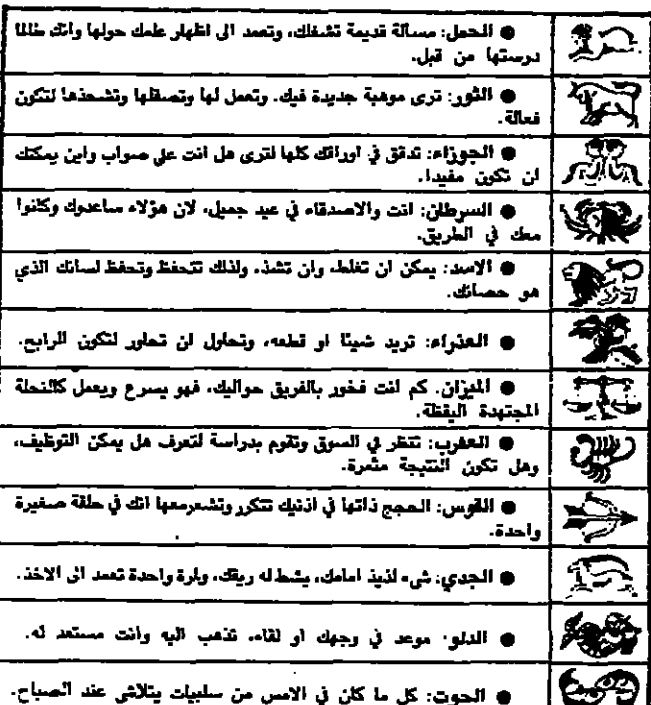 ● الحمل: مسألة قديمة تشغلك، وتعمد الى اظهار علمك حولها وانك طالما
درستها من قبل.
● الثور: ترى موهبة جديدة فيك. وتعمل لها وتصقلها وتشحذها لتكون
فعالة.
● الجوزاء: تدقق في اوراقك كلها لترى هل انت على صواب واين يمكنك
ان تكون مفيدا.
● السرطان: انت والاصدقاء في عيد جميل، لان هؤلاء ساعدوك وكانوا
معك في الطريق.
● الاسد: يمكن ان تغلط، وان تشذ، ولذلك تتحفظ وتحفظ لسانك الذي
هو حصانك.
● العذراء: تريد شيئا او قطعه، وتحاول ان تحاور لتكون الرابح.
● الميزان. كم انت فخور بالفريق حواليك، فهو يسرع ويعمل كالنحلة
المجتهدة اليقظة.
● العقرب: تنظر في السوق وتقوم بدراسة لتعرف هل يمكن التوظيف،
وهل تكون النتيجة مثمرة.
● القوس: الحجج ذاتها في اذنيك تتكرر وتشعرمعها انك في حلقة صغيرة
واحدة.
● الجدي: شيء لذيذ امامك، يشط له ريقك، ولمرة واحدة تعمد الى الاخذ.
● الدلو: موعد في وجهك او لقاء، تذهب اليه وانت مستعد له.
● الحوت: كل ما كان في الامس من سلبيات يتلاشى عند الصباح.